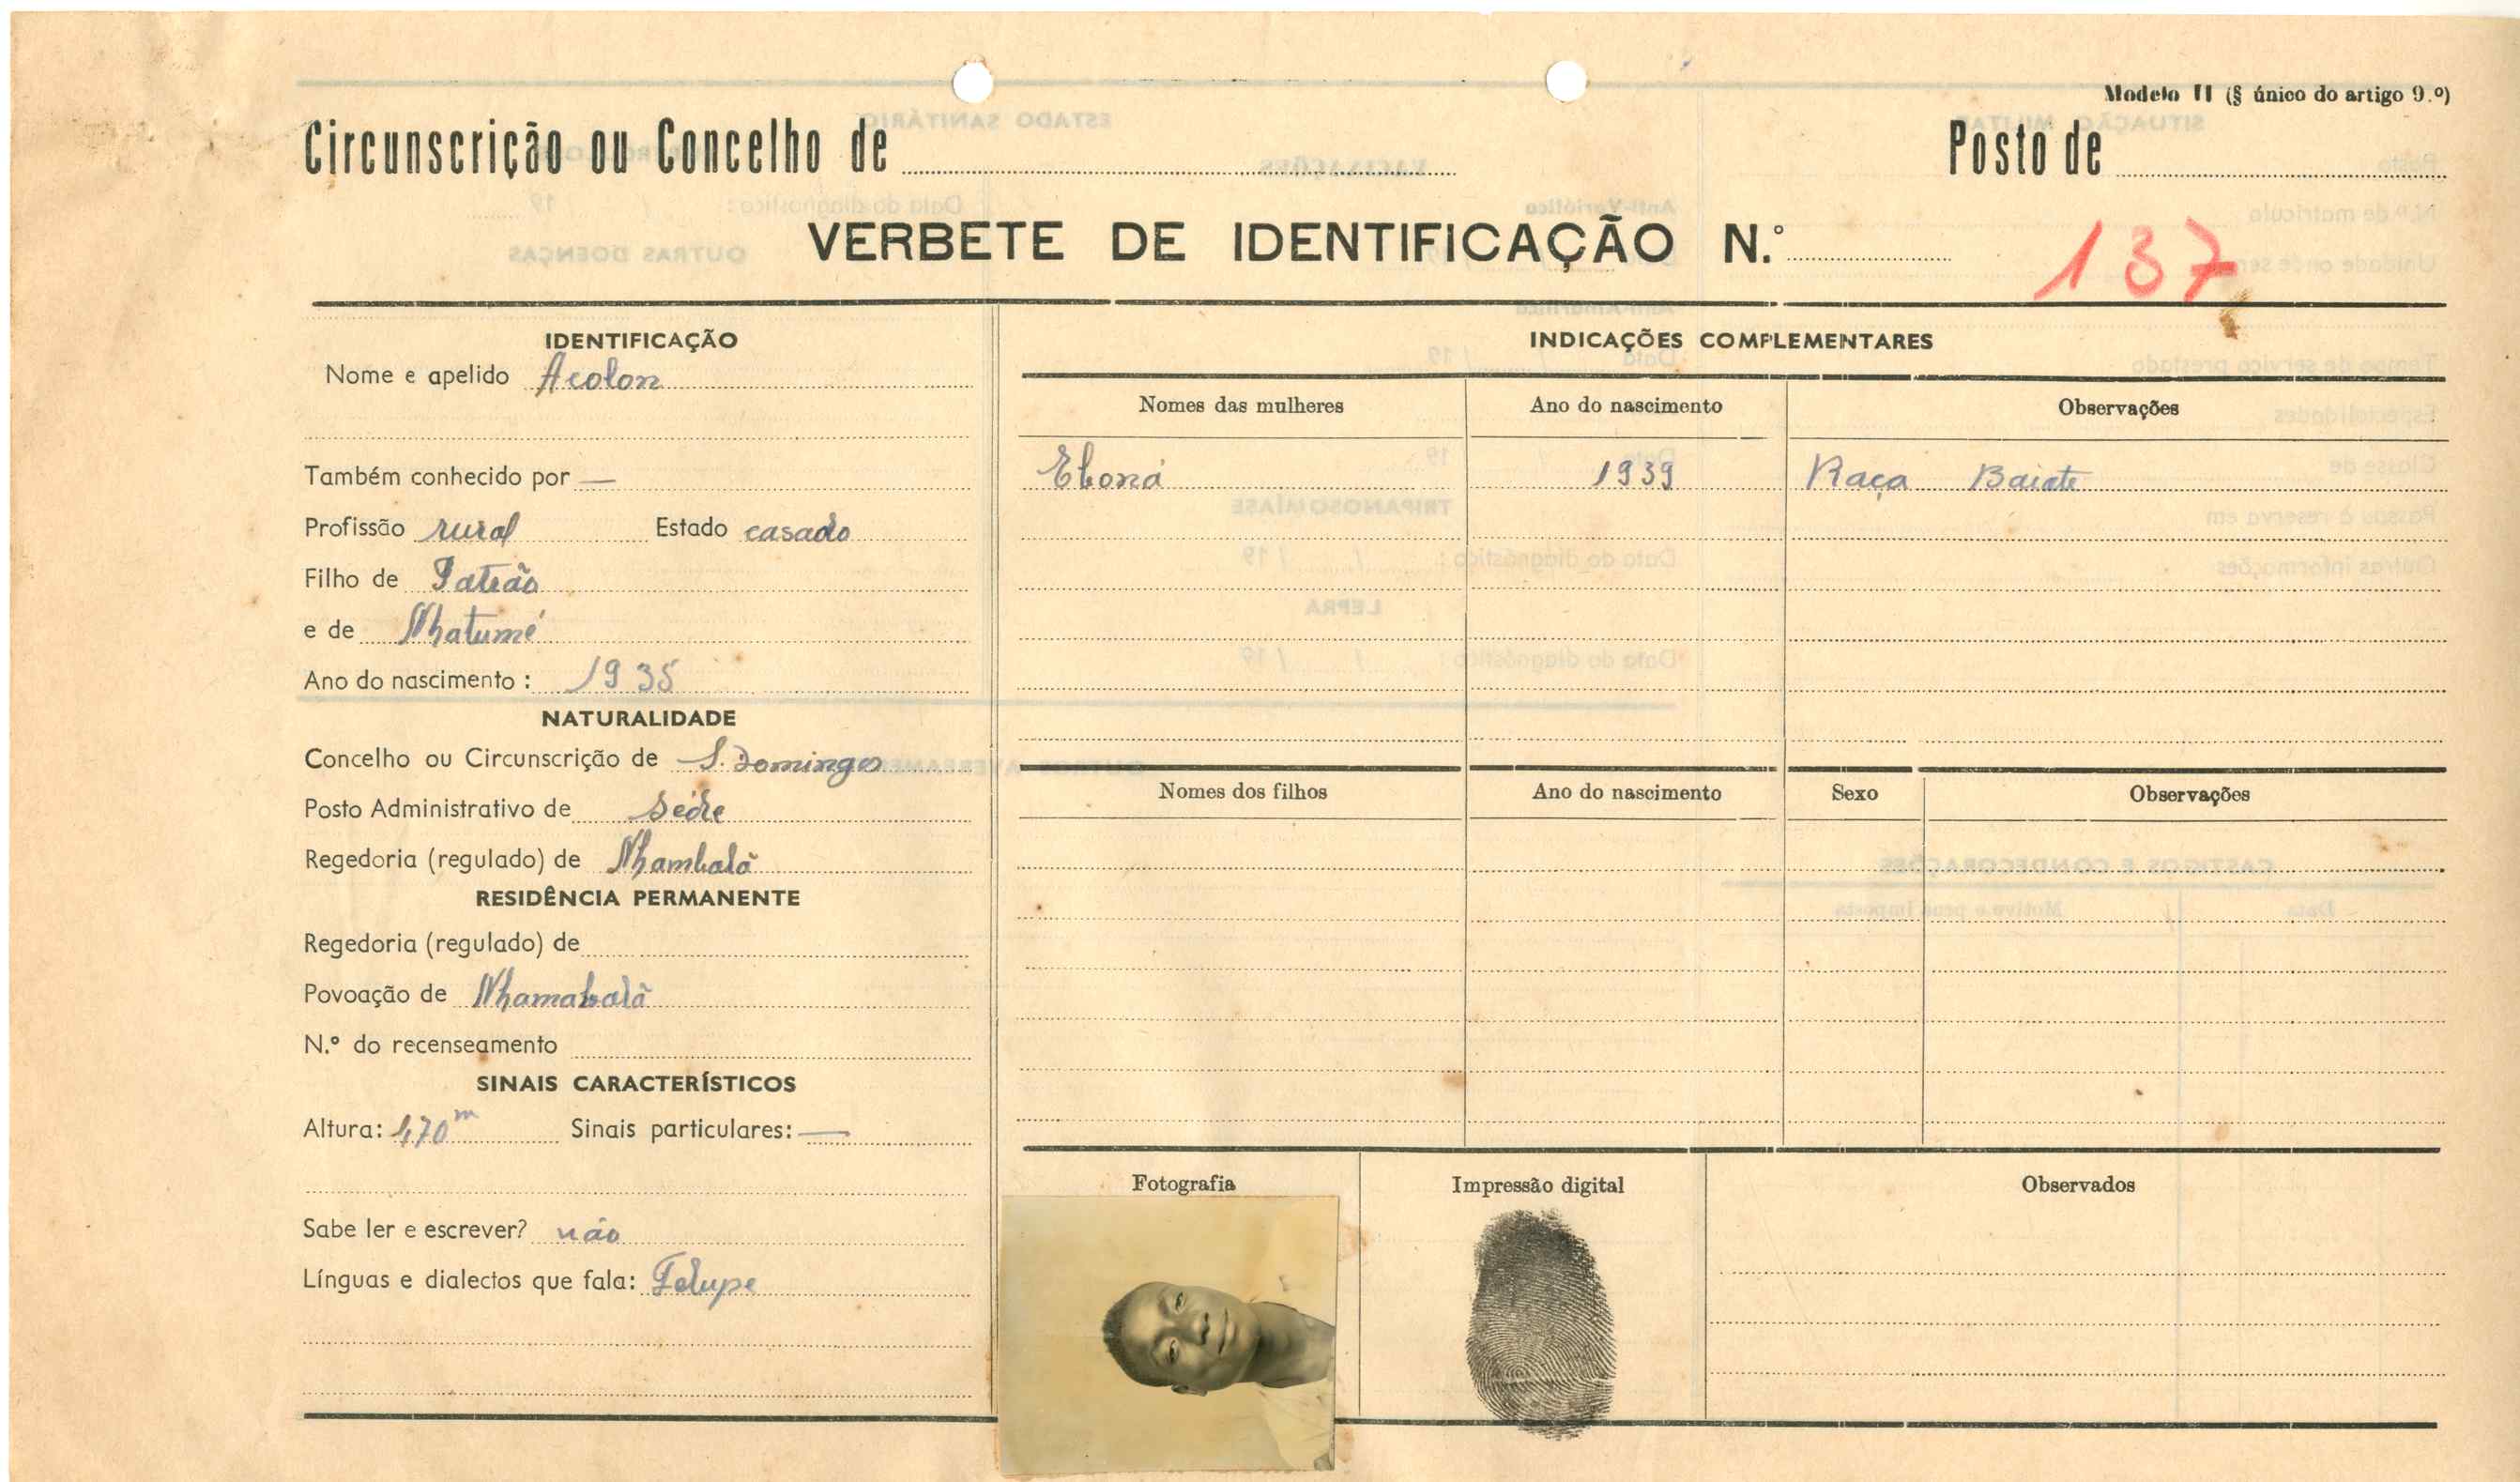 Modelo II (§ único do artigo 9.º)
Circunscrição ou Concelho de
Posto de
VERBETE DE IDENTIFICAÇÃO N.º
137
IDENTIFICAÇÃO
Nome e apelido Acolon
Também conhecido por —
Profissão rural Estado casado
Filho de Patrão
e de Nhatumé
Ano do nascimento: 1935
NATURALIDADE
Concelho ou Circunscrição de S. Domingos
Posto Administrativo de Sede
Regedoria (regulado) de Nhambalã
RESIDÊNCIA PERMANENTE
Regedoria (regulado) de
Povoação de Nhamabalã
N.º do recenseamento
SINAIS CARACTERÍSTICOS
Altura: 1,70 m Sinais particulares: —
Sabe ler e escrever? não
Línguas e dialectos que fala: Felupe
INDICAÇÕES COMPLEMENTARES
Nomes das mulheres Ano do nascimento Observações
Eboná 1939 Raça Baiote
Nomes dos filhos Ano do nascimento Sexo Observações
Fotografia Impressão digital Observados